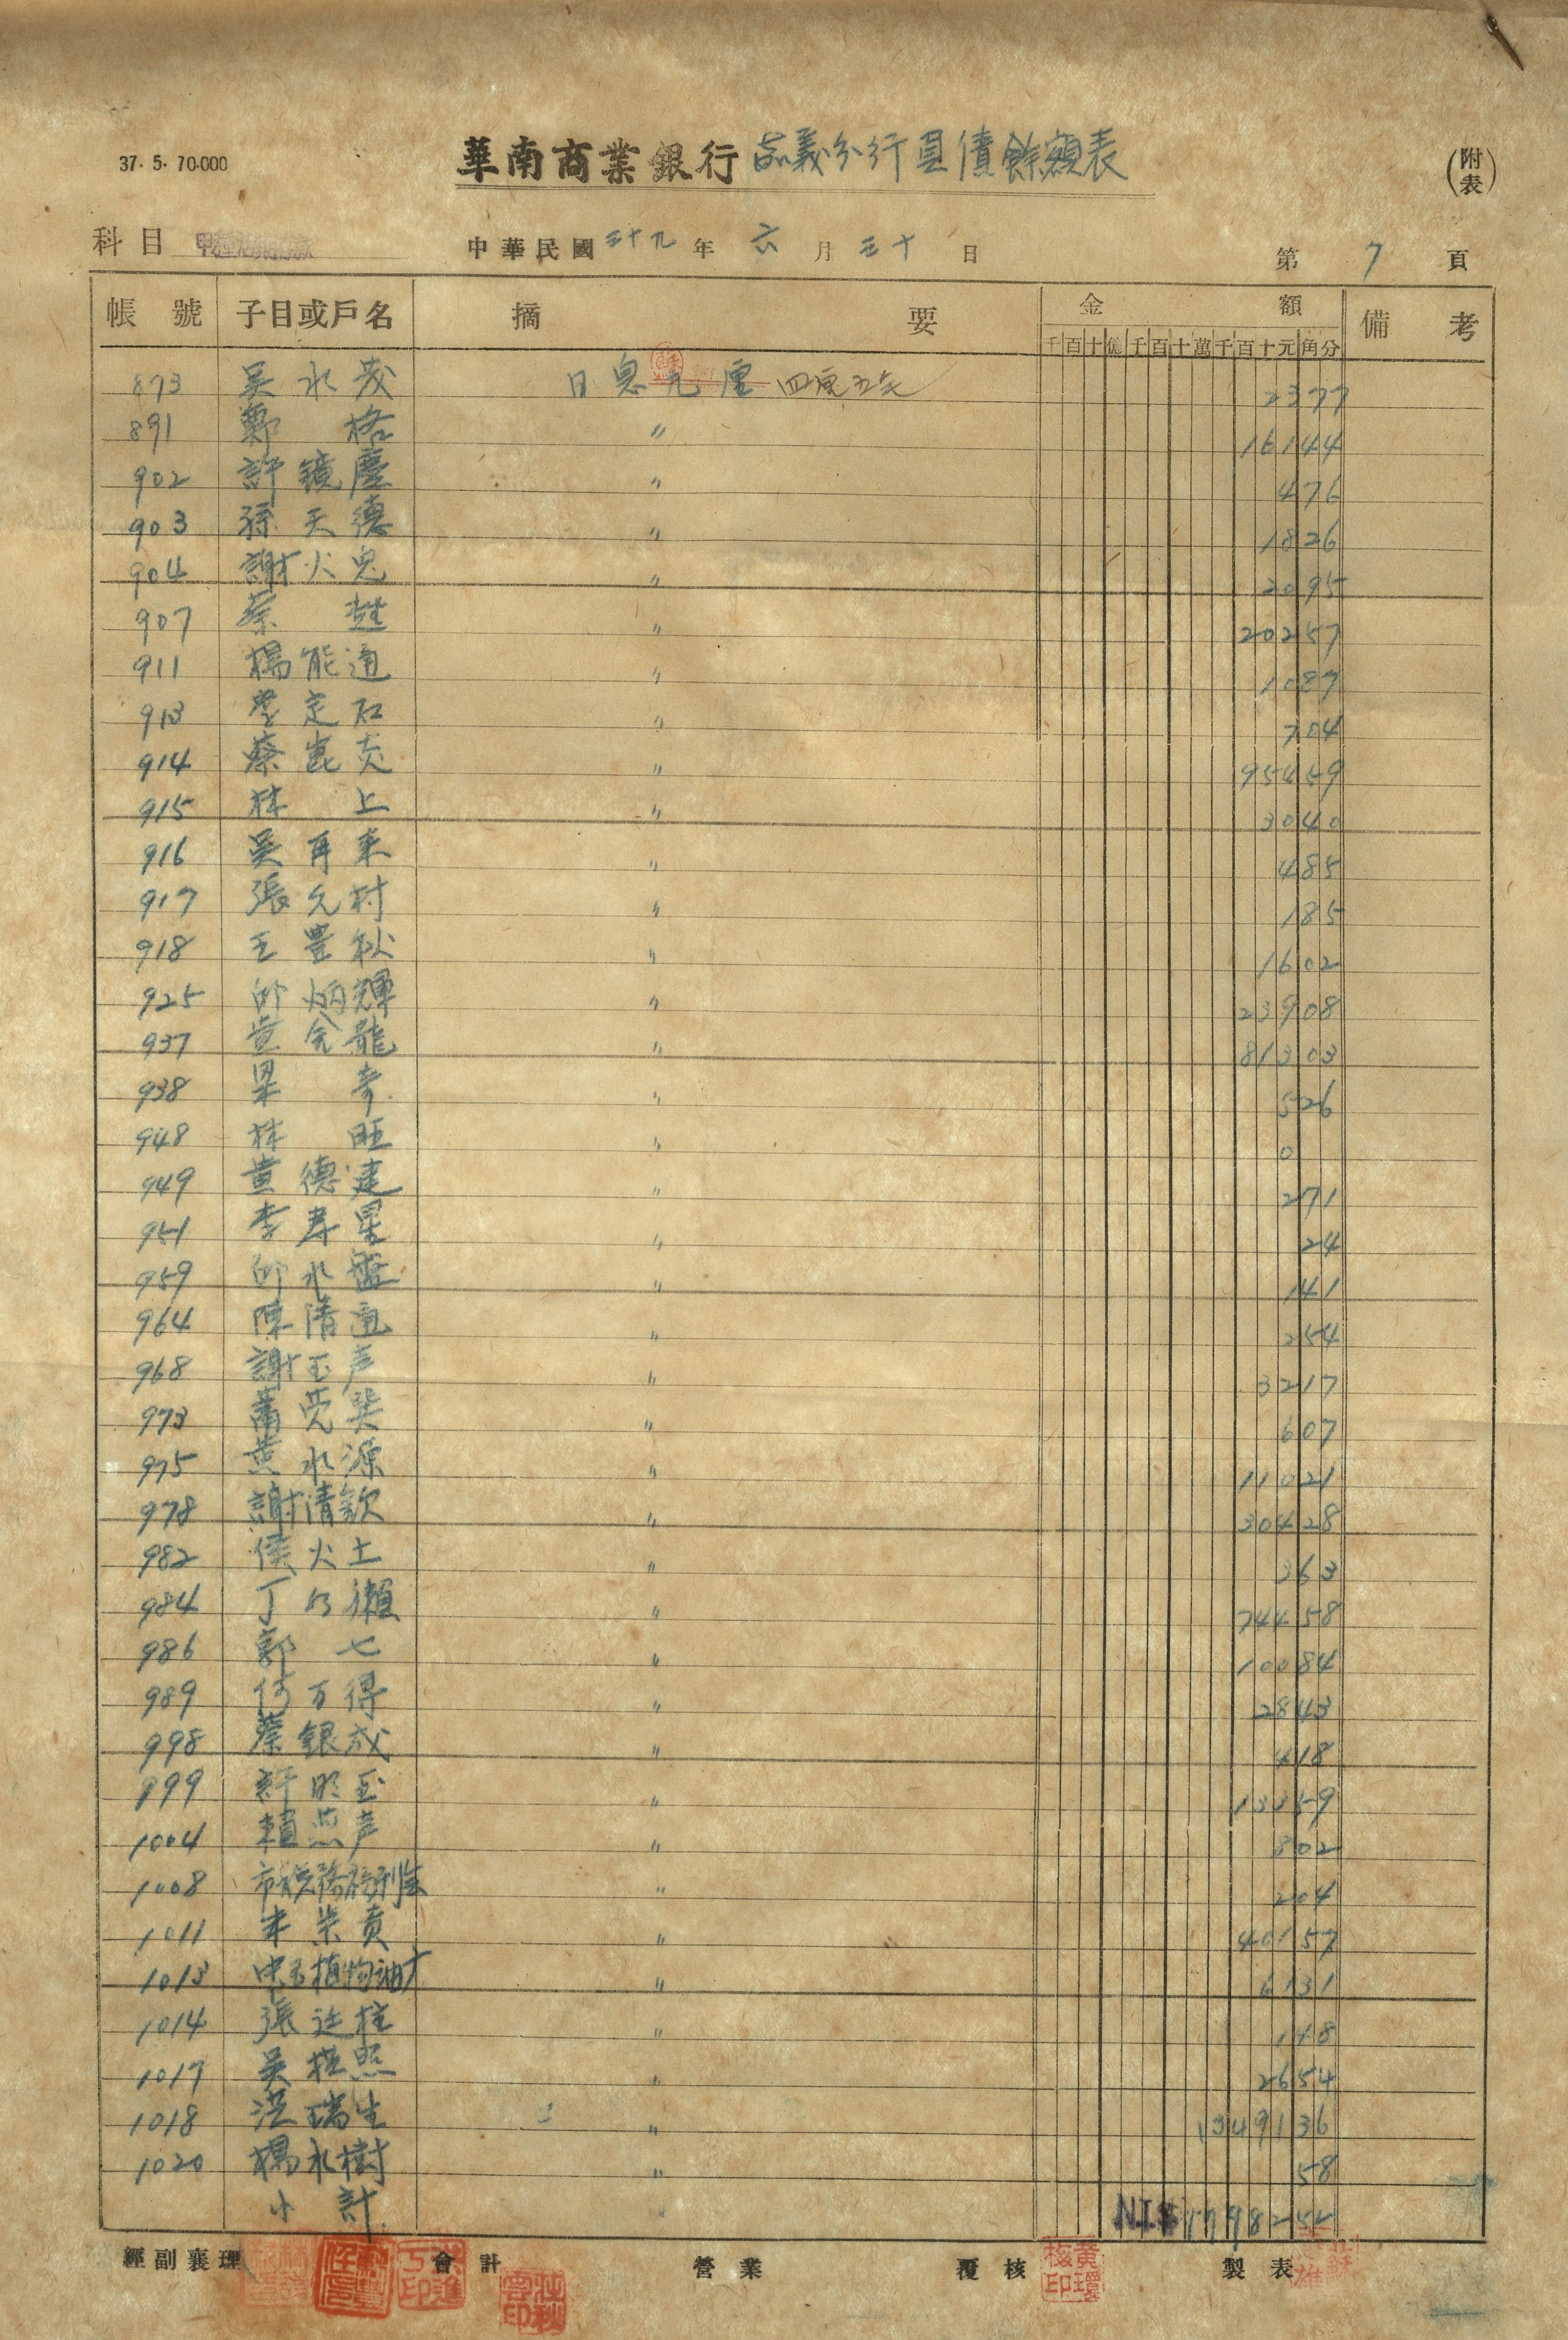 37.5.70.000
華南商業銀行 嘉義分行負債餘額表
(附表)
科目 甲種活期存款 中華民國 三十九 年 六 月 三十 日 第 7 頁
帳號 子目或戶名 摘要 金額 備考
千百十億千百十萬千百十元角分
873 吳水茂 日息 九厘 四厘五毛 2377
891 鄭格 〃 16144
902 許鏡慶 〃 476
903 孫天德 〃 1826
904 謝火鬼 〃 2095
907 蔡 〃 20257
911 楊能通 〃 1087
913 定石 〃 704
914 蔡崑炎 〃 95459
915 林上 〃 3040
916 吳再來 〃 485
917 張允村 〃 185
918 王豊秋 〃 1602
925 邱炳輝 〃 23908
937 黃金龍 〃 81303
938 梁奇 〃 526
948 林旺 〃 0
949 黃德建 〃 271
951 李壽星 〃 24
959 邱水盤 〃 141
964 陳清通 〃 254
968 謝玉声 〃 3217
973 蕭 〃 607
975 黃水源 〃 11021
978 謝清欽 〃 30428
982 侯火土 〃 363
984 丁乃獺 〃 74458
986 郭七 〃 10084
989 何万得 〃 2843
998 蔡銀成 〃 418
999 許明玉 〃 13359
1004 賴燕声 〃 802
1008 市稅務 〃 204
1011 朱崇貴 〃 40157
1013 植物油 〃 6131
1014 張廷柱 〃 148
1017 吳 照 〃 2654
1018 洪瑞生 〃 1349136
1020 楊水樹 〃 58
小計 〃 NT$ 1798252
經副襄理 會計 營業 覆核 黃瓊梅印 製表